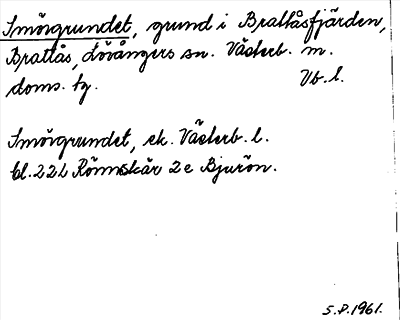 Smörgrundet, grund i Brattåsfjärden,
Brattås, Lövångers sn. Västerb. m.
doms. tg. Vb. l.
Smörgrundet, ek. Västerb. l.
bl. 22L Rönnskär 2e Bjurön.
S.P. 1961.